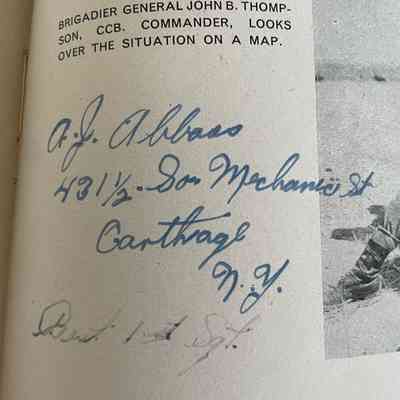 BRIGADIER GENERAL JOHN B. THOMP-
SON, CCB. COMMANDER, LOOKS
OVER THE SITUATION ON A MAP.
A. J. Abbass
431½ So Mechanic St
Carthage
N.Y.
Best 1st Sgt.